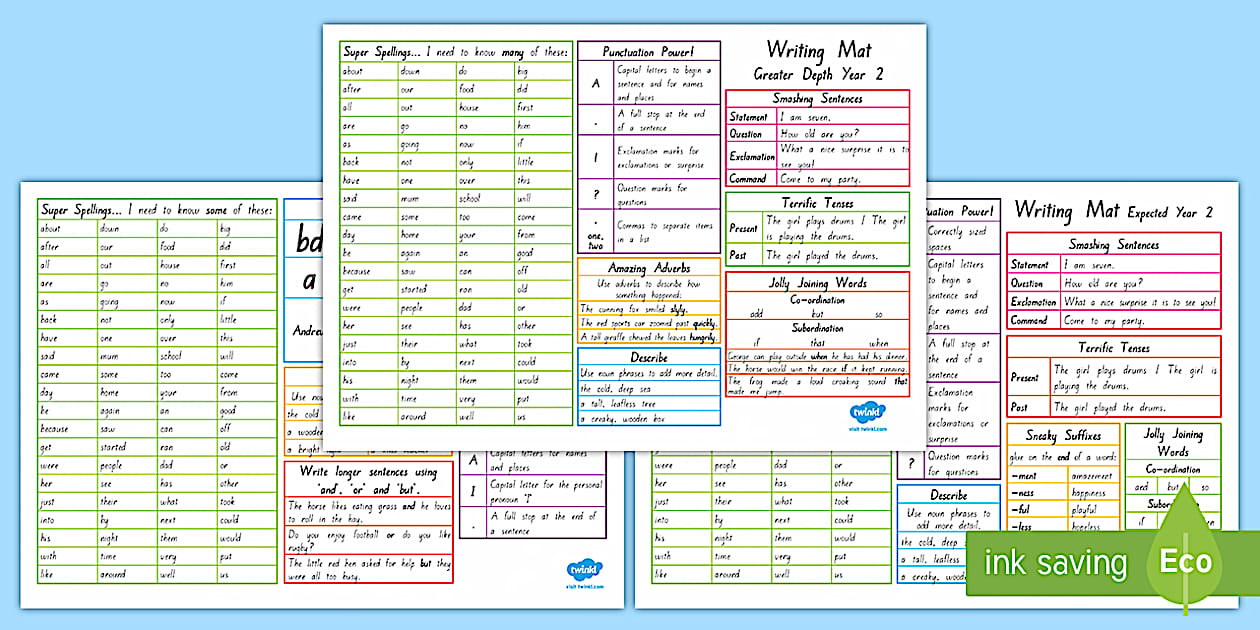 Super Spellings... I need to know many of these:
about down do big
after our food did
all out house first
are go no him
as going now if
back not only little
have one over this
said mum school will
came some too come
day home your from
be again an good
because saw can off
get started ran old
were people dad or
her see has other
just their what took
into by next could
his night them would
with time very put
like around well us
Punctuation Power!
A Capital letters to begin a
sentence and for names
and places
. A full stop at the end
of a sentence
! Exclamation marks for
exclamations or surprise
? Question marks for
questions
, Commas to separate items
one, two in a list
Amazing Adverbs
Use adverbs to describe how
something happened:
The cunning fox smiled slyly.
The red sports car zoomed past quickly.
A tall giraffe chewed the leaves hungrily.
Describe
Use noun phrases to add more detail.
the cold, deep sea
a tall, leafless tree
a creaky, wooden box
Writing Mat
Greater Depth Year 2
Smashing Sentences
Statement I am seven.
Question How old are you?
Exclamation What a nice surprise it is to
see you!
Command Come to my party.
Terrific Tenses
Present The girl plays drums / The girl
is playing the drums.
Past The girl played the drums.
Jolly Joining Words
Co-ordination
and but so
Subordination
if that when
George can play outside when he has had his dinner.
The horse would win the race if it kept running.
The frog made a loud croaking sound that
made me jump.
twinkl
visit twinkl.com
Super Spellings... I need to know some of these:
about down do big
after our food did
all out house first
are go no him
as going now if
back not only little
have one over this
said mum school will
came some too come
day home your from
be again an good
because saw can off
get started ran old
were people dad or
her see has other
just their what took
into by next could
his night them would
with time very put
like around well us
a
Use
the cold
a
a bright
Write longer sentences using
'and', 'or' and 'but'.
The horse likes eating grass and he loves
to roll in the hay.
Do you enjoy football or do you like
rugby?
The little red hen asked for help but they
were all too busy.
A Capital letters for names
and places
I Capital letter for the personal
pronoun 'I'
. A full stop at the end of
a sentence
twinkl
visit twinkl.com
were people dad or
her see has other
just their what took
into by next could
his night them would
with time very put
like around well us
Power!
Correctly sized
spaces
Capital letters
to begin a
sentence and
for names and
places
A full stop at
the end of a
sentence
Exclamation
marks for
exclamations or
surprise
? Question marks
for questions
Describe
Use noun phrases to
add more detail.
the cold, deep
a tall, leafless
a creaky,
Writing Mat Expected Year 2
Smashing Sentences
Statement I am seven.
Question How old are you?
Exclamation What a nice surprise it is to see you!
Command Come to my party.
Terrific Tenses
Present The girl plays drums / The girl is
playing the drums.
Past The girl played the drums.
Sneaky Suffixes
glue on the end of a word:
-ment amazement
-ness happiness
-ful playful
-less hopeless
Jolly Joining
Words
Co-ordination
and but so
if
ink saving
Eco